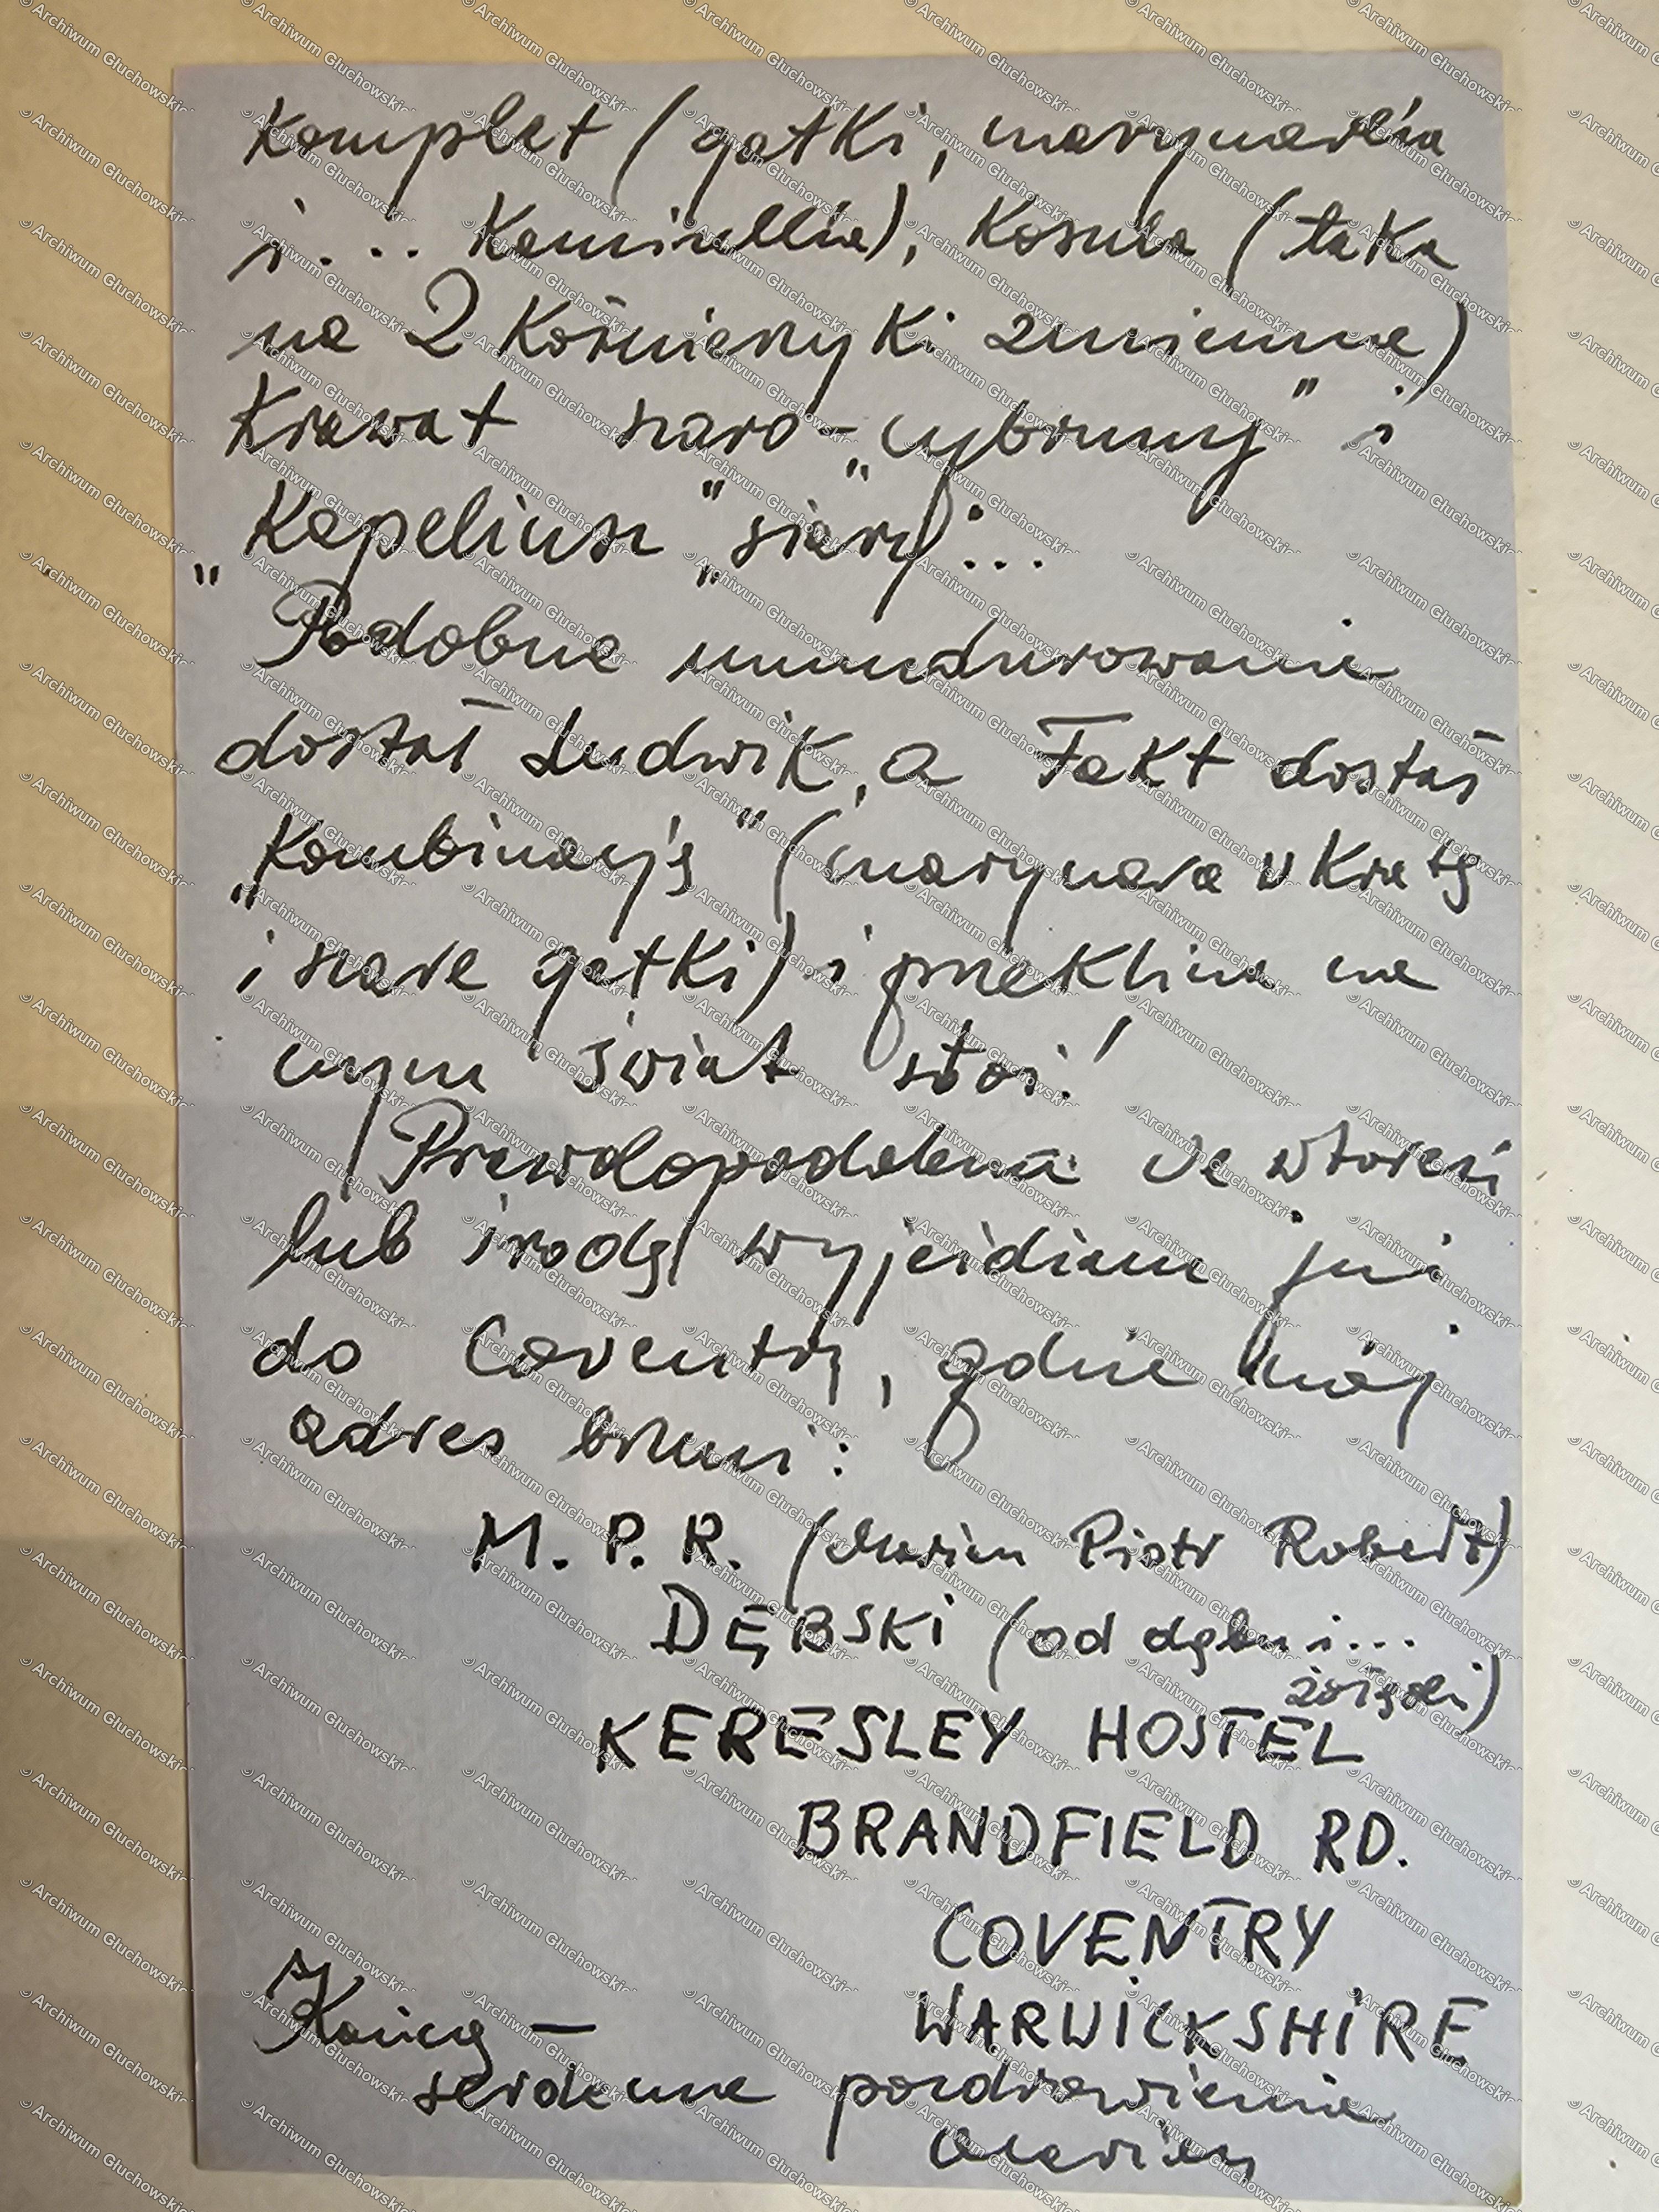 Komplet (gatki, marynarka
i... Kamizelka), Koszula (taka
na 2 Kołnierzyki zmienne)
Krawat szaro-„cybrzny” i
„Kapeliusz” „siary”...
Podobne umundurowanie
dostał Ludwik, a Fakt dostał
„Kombinację” (marynara w Kratę
i szare gatki) i przeklina na
czym świat stoi!
Prawdopodobnie we wtorek
lub środę wyjeżdżam już
do Coventry, gdzie mój
adres brzmi:
M. P. R. (Marian Piotr Robert)
DĘBSKI (od dębu i...
żołędzi)
KERESLEY HOSTEL
BRANDFIELD RD.
COVENTRY
WARWICKSHIRE
Kończę —
serdeczne pozdrowienia
Marian
© Archiwum Głuchowskich